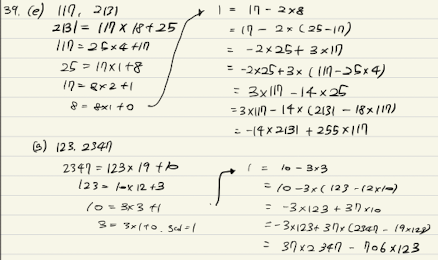 39. (e) 117, 2131
2131 = 117 × 18 + 25
117 = 25 × 4 + 17
25 = 17 × 1 + 8
17 = 8 × 2 + 1
8 = 8×1 + 0
1 = 17 - 2×8
= 17 - 2 × (25-17)
= -2×25 + 3×17
= -2×25 + 3× (117-25×4)
= 3×117 - 14×25
= 3×117 - 14× (2131 - 18×117)
= -14×2131 + 255×117
123, 2347
2347 = 123 × 19 + 10
123 = 10×12 + 3
10 = 3×3 + 1
3 = 3×1+0. gcd=1
1 = 10 - 3×3
= 10 - 3×(123 - 12×10)
= -3×123 + 37×10
= -3×123 + 37×(2347 - 19×123)
= 37×2347 - 706×123